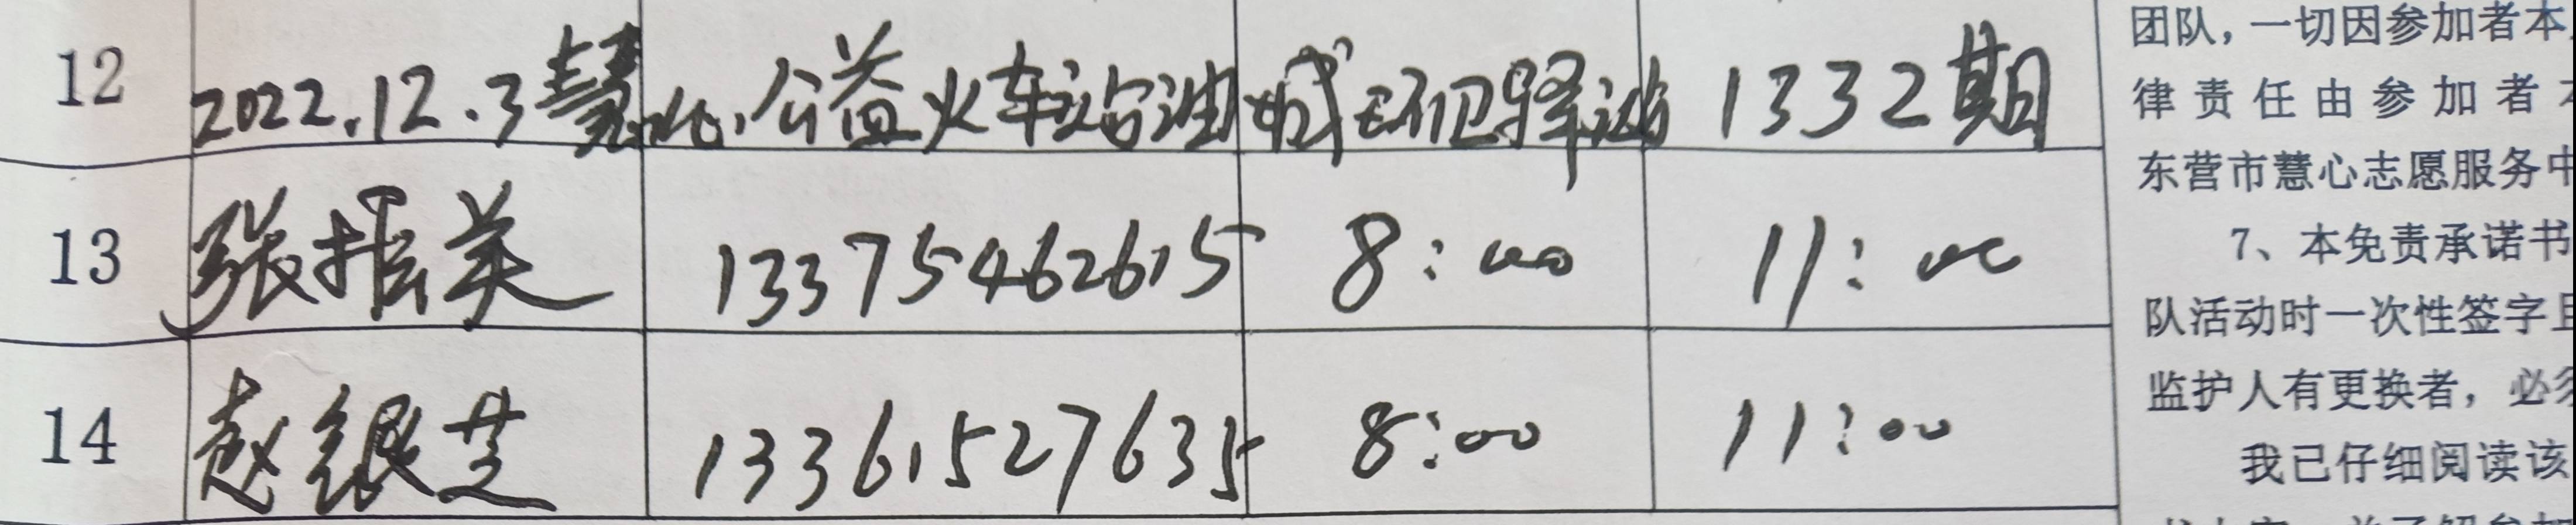 12 2022.12.3慧心公益火车站油城环卫驿站 1332期
13 张振美 13375462615 8:00 11:00
14 赵银芝 13361527635 8:00 11:00
团队，一切因参加者本
律责任由参加者
东营市慧心志愿服务中
7、本免责承诺书
队活动时一次性签字且
监护人有更换者，必须
我已仔细阅读该